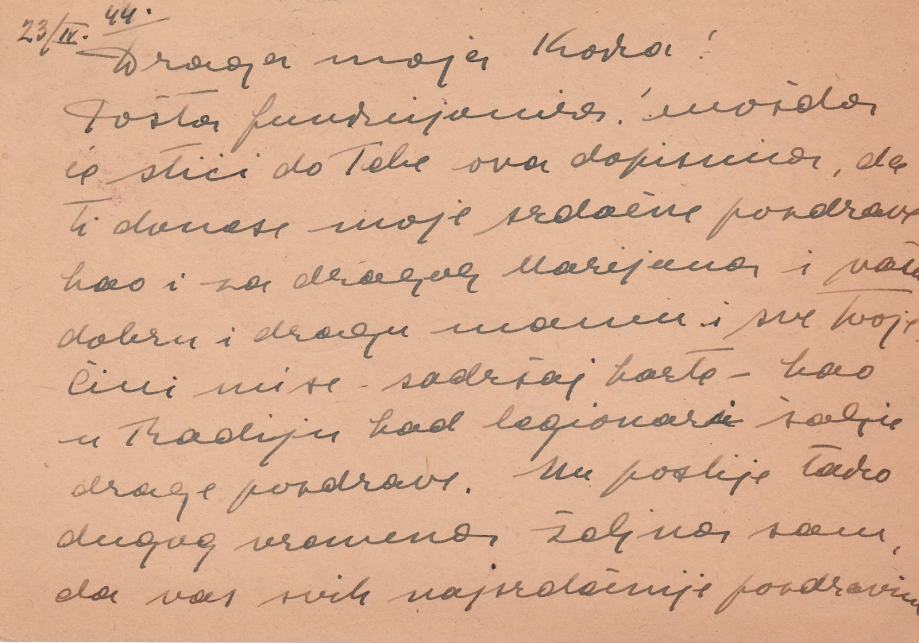 23/IV. 44.
Draga moja Kova!
Pošta funkcijonira! možda
će stići do Tebe ova dopisnica, da
Ti donese moje srdačne pozdrave
kao i za dragog Marijana i vašu
dobru i dragu mamu i sve Tvoje.
Čini mi se - sadržaj karte - kao
u Radiju kad legionari šalju
drage pozdrave. Nu poslije tako
dugog vremena željna sam,
da vas svih najsrdačnije pozdravim